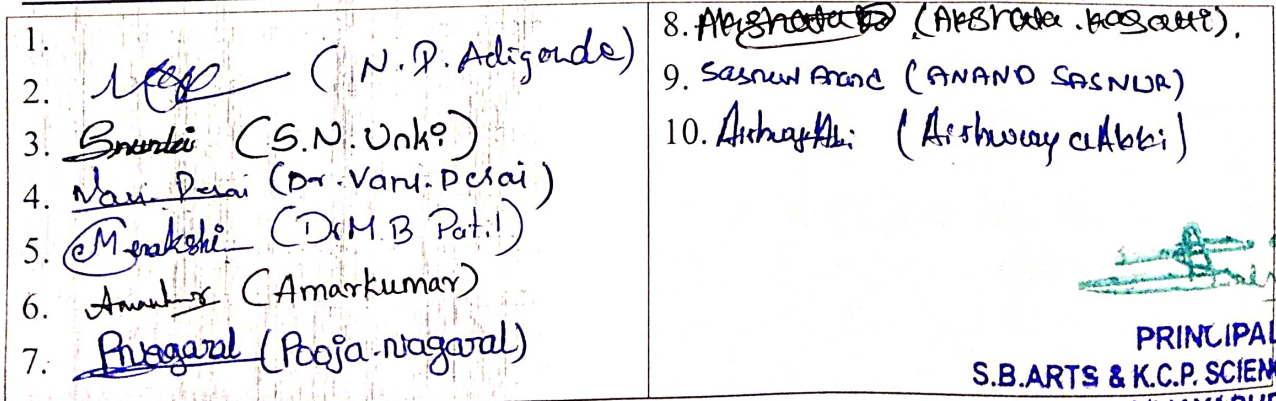 1.
2. (N.P. Adigonde)
3. (S.N. Unki)
4. Vani Desai (Dr. Vani. Desai)
5. Menakshi (Dr M.B Patil)
6. (Amarkumar)
7. Pnagaral (Pooja.nagaral)
8. Akshata (Akshata.kogatti).
9. Sasnur Anand (ANAND SASNUR)
10. (Aishwarya Akki)
PRINCIPAL
S.B.ARTS & K.C.P. SCIEN